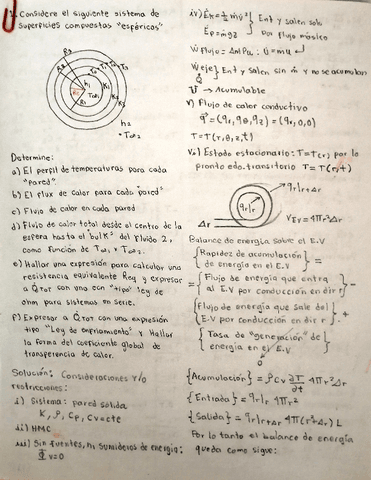 1. Considere el siguiente sistema de
superficies compuestas "esféricas"
R3
R2
T0 T1 T2 T3
h1
R1
T∞1
K1 K2
h2
• T∞2
Determine:
a) El perfil de temperaturas para cada
"pared"
b) El flux de calor para cada "pared"
c) Flujo de calor en cada pared
d) Flujo de calor total desde el centro de la
esfera hasta el bulk's del fluido 2,
como función de T∞1 y T∞2.
e) Hallar una expresión para calcular una
resistencia equivalente Req y expresar
a QTOT con una con "tipo" ley de
ohm para sistemas en serie.
f) Expresar a QTOT con una expresión
tipo "Ley de enfriamiento" y Hallar
la forma del coeficiente global de
transferencia de calor.
Solución: Consideraciones y/o
restricciones:
i) Sistema: pared sólida
K, ρ, Cp, Cv = cte
ii) HMC
iii) Sin fuentes, ni sumideros de energía:
Φv=0
iv) Ėk = ½ṁv² } Ent y salen solo
Ėp = ṁgz } por flujo másico
Ẇflujo = ΔṁPv; U̇ = ṁu
Ẇeje } Ent y salen sin ṁ y no se acumulan
Q̇
U → Acumulable
v) Flujo de calor conductivo
q = (qr, qθ, qz) = (qr, 0, 0)
T = T(r, θ, z, t)
vi) Estado estacionario: T = T(r) por lo
pronto edo. transitorio T = T(r, t)
qr|r+Δr
qr|r
Δr
VEV = 4πr²Δr
Balance de energía sobre el E.V
{Rapidez de acumulación}
{de energía en el E.V} =
= {Flujo de energía que entra}
{al E.V por conducción en dir r} -
{Flujo de energía que sale del}
{E.V por conducción en dir r} +
{Tasa de "generación" de}
{energía en el E.V}
0
{Acumulación} = ρCv ∂T/∂t 4πr²Δr
{Entrada} = qr|r 4πr²
{Salida} = qr|r+Δr 4π(r²+Δr) L
Por lo tanto el balance de energía
queda como sigue: